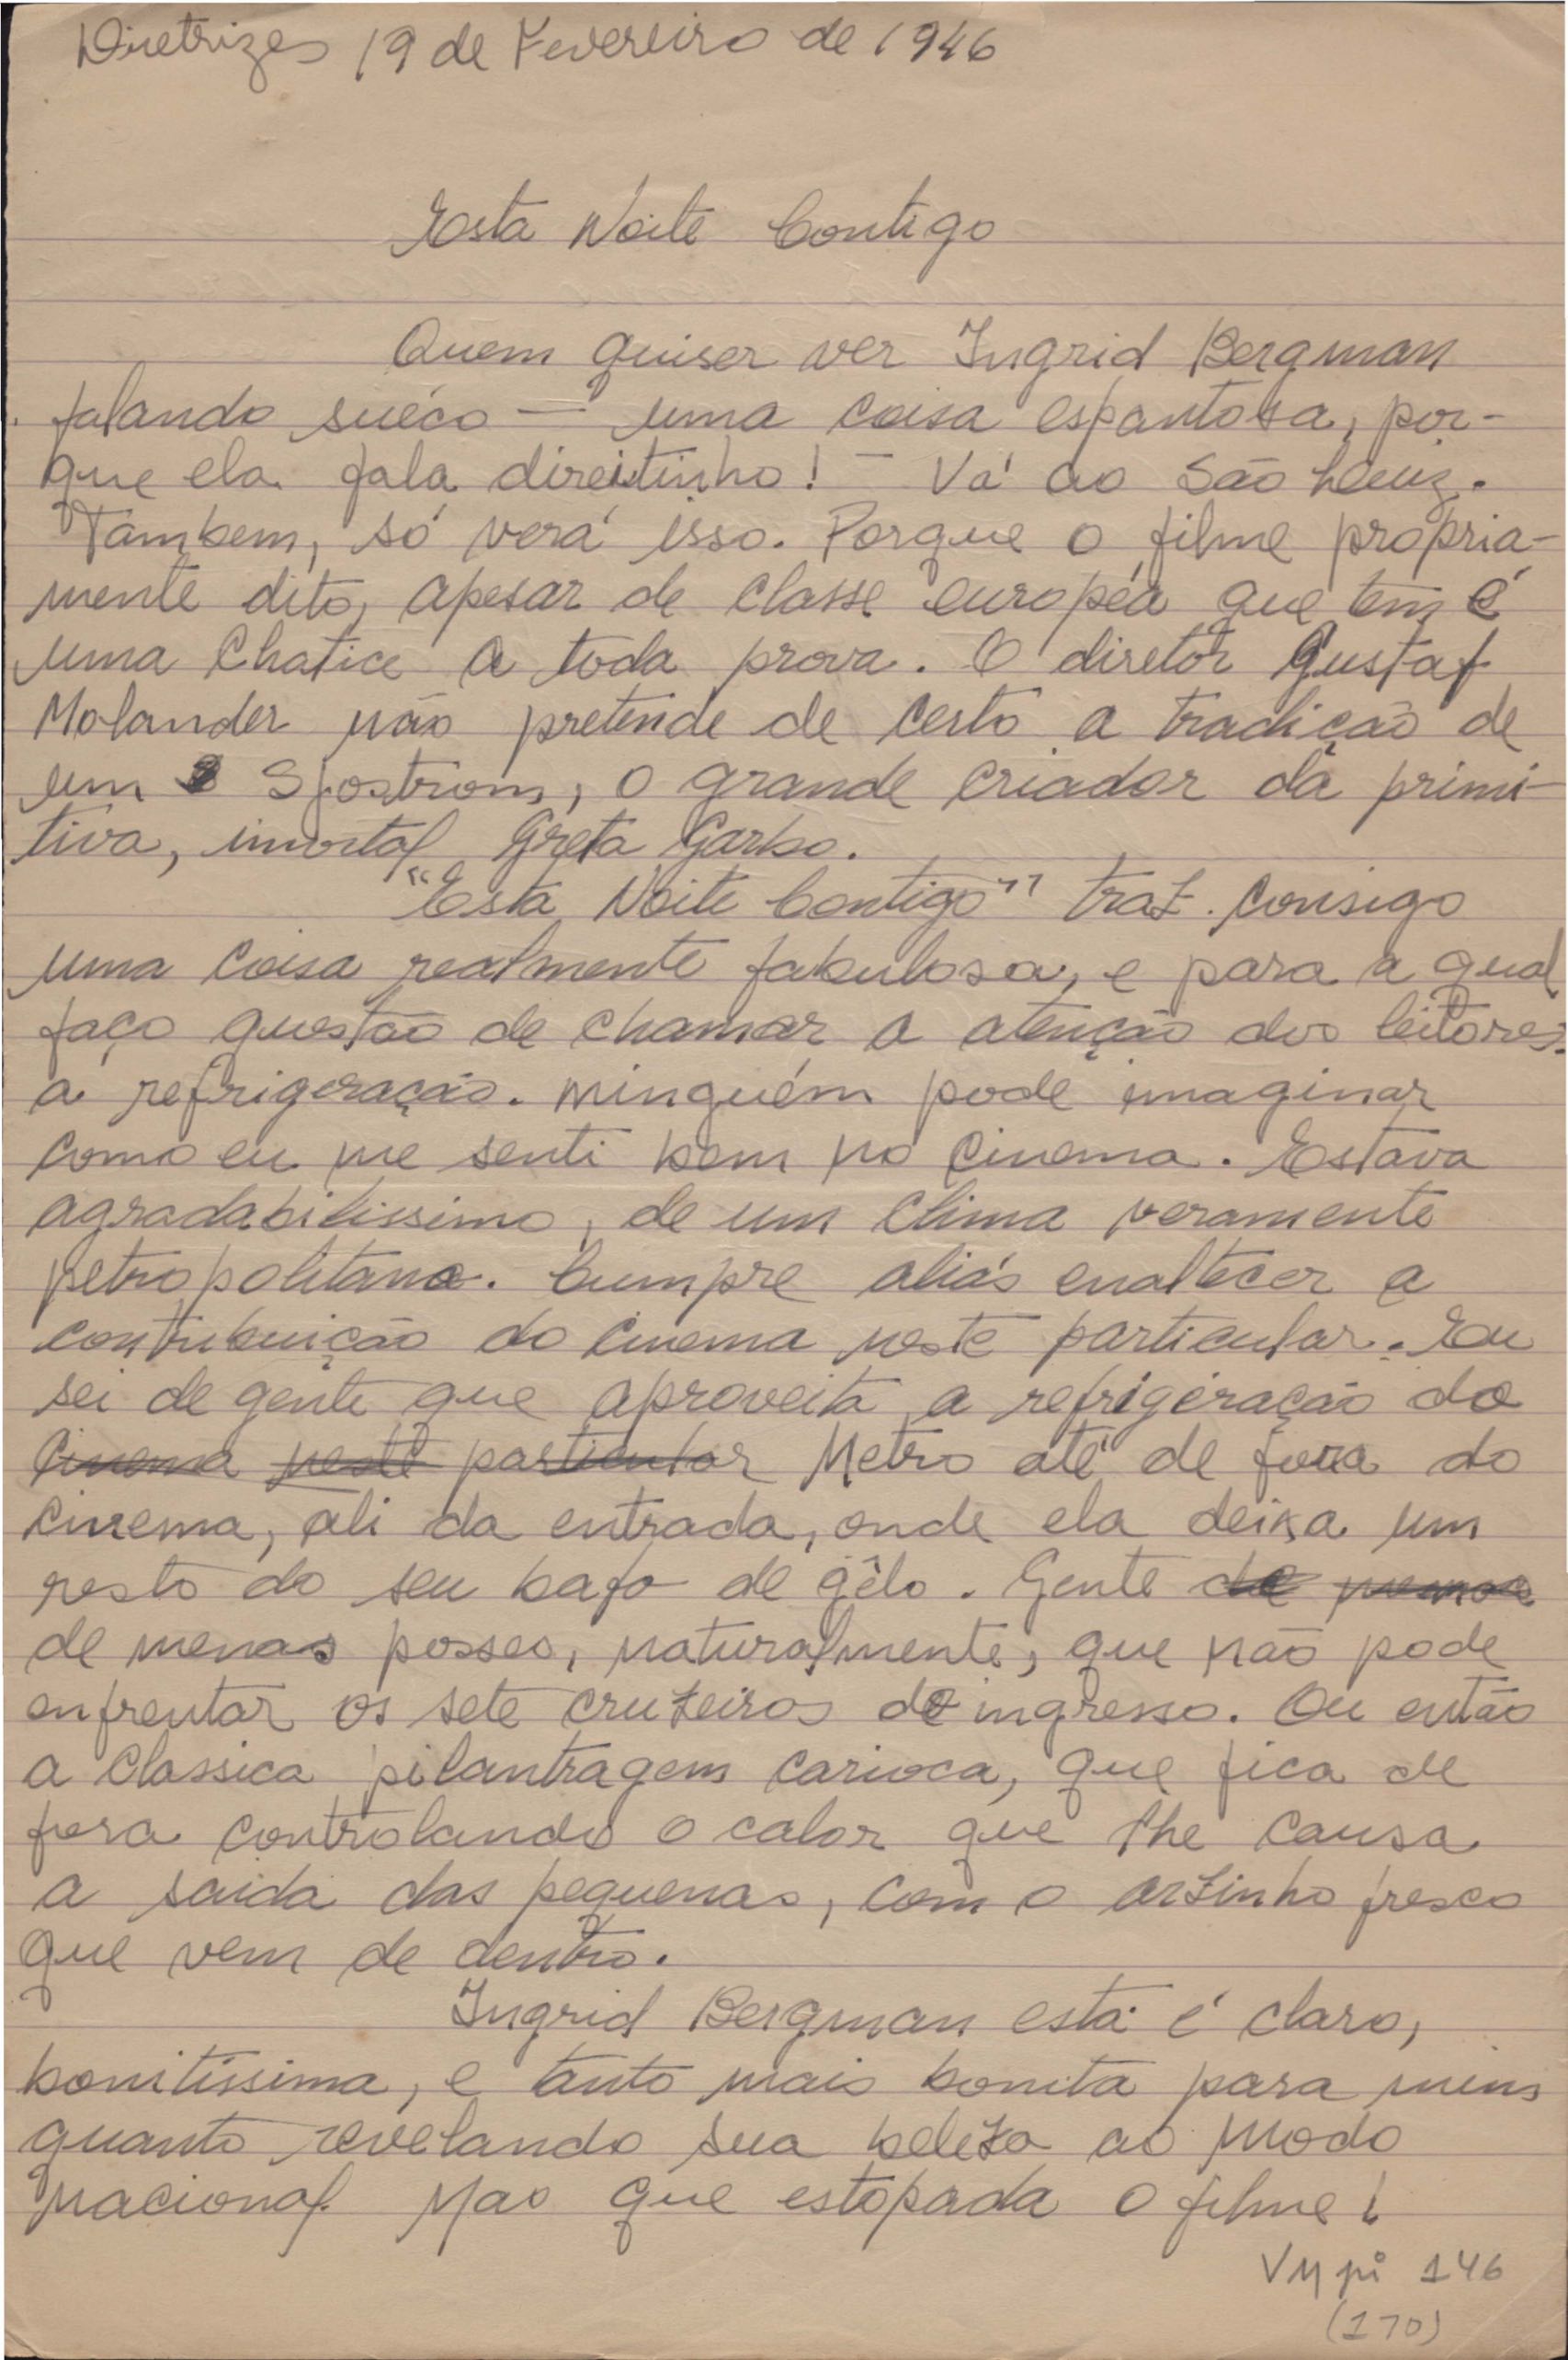 Diretrizes 19 de Fevereiro de 1946
Esta Noite Contigo
Quem quiser ver Ingrid Bergman
falando suéco — uma coisa espantosa, por-
que ela fala direitinho! — Vá ao São Luiz.
Tambem, só verá isso. Porque o filme propria-
mente dito, apesar de classe européa que tem é
uma chatice a toda prova. O diretor Gustaf
Molander não pretende de certo a tradição de
um Sjostrom, o grande criador da primi-
tiva, imortal Greta Garbo.
"Esta Noite Contigo" traz consigo
uma coisa realmente fabulosa, e para a qual
faço questão de chamar a atenção dos leitores:
a refrigeração. ninguém pode imaginar
como eu me senti bem no cinema. Estava
agradabilissimo, de um clima veramente
petropolitano. Cumpre aliás enaltecer a
contribuição do cinema neste particular. Eu
sei de gente que aproveita a refrigeração do
cinema neste particular Metro até de fora do
cinema, ali da entrada, onde ela deixa um
resto do seu bafo de gêlo. Gente de
de menas posses, naturalmente, que não pode
enfrentar os sete cruzeiros de ingresso. Ou então
a classica pilantragem carioca, que fica de
fora controlando o calor que lhe causa
a saida das pequenas, com o arzinho fresco
que vem de dentro.
Ingrid Bergman está é claro,
bonitíssima, e tanto mais bonita para mim
quanto revelando sua beleza ao modo
nacional. Mas que estopada o filme!
VM pi 146
(170)